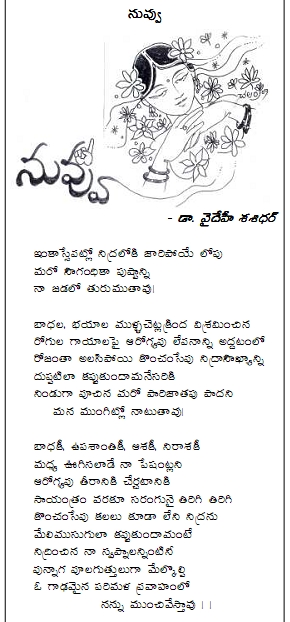 నువ్వు
నువ్వు
- డా. వైదేహీ శశిధర్
ఇంతాస్సేపట్లో నిద్రలోకి జారిపోయే లోపు
మరో సౌగంధికా పుష్పాన్ని
నా జడలో తురుముతావు।
బాధల, భయాల ముళ్ళచెట్లక్రింద విశ్రమించిన
రోగుల గాయాలపై ఆరోగ్యపు లేపనాన్ని అద్దటంలో
రోజంతా అలసిపోయి కొంచంసేపు నిద్రాసౌఖ్యాన్ని
దుప్పటిలా కప్పుకుందామనేసరికి
నిండుగా పూచిన మరో పారిజాతపు పాదుని
మన ముంగిట్లో నాటుతావు।
బాధకీ, ఉపశాంతికీ, ఆశకీ, నిరాశకీ
మధ్య ఊగిసలాడే నా పేషంట్లని
ఆరోగ్యపు తీరానికి చేర్చటానికి
సాయంత్రం వరకూ సరంగునై తిరిగి తిరిగి
కొంచంసేపు కలలు కూడా లేని నిద్రను
మేలిముసుగులా కప్పుకుందామంటే
నిద్రించిన నా స్వప్నాలన్నింటినీ
పున్నాగ పూలగుత్తులుగా మేల్కొల్పి
ఓ గాఢమైన పరిమళ ప్రవాహంలో
నన్ను ముంచివేస్తావు ।।